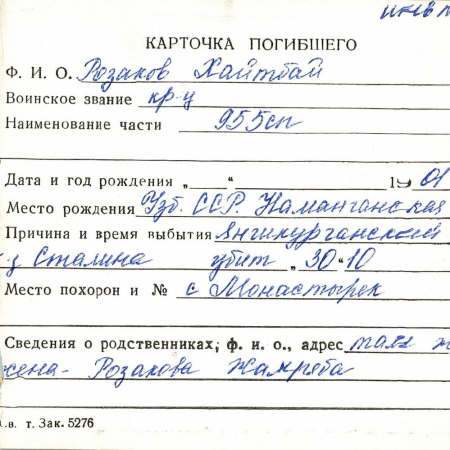 КАРТОЧКА ПОГИБШЕГО
Ф. И. О. Розаков Хайтбай
Воинское звание кр-ц
Наименование части 955сп
Дата и год рождения „ “ 1901
Место рождения Узб. ССР. Наманганская
Причина и время выбытия Янгикурганский
Сталина убит „30“10
Место похорон и № с Монастырек
Сведения о родственниках, ф. и. о., адрес там ж
жена- Розакова
.в. т. Зак. 5276